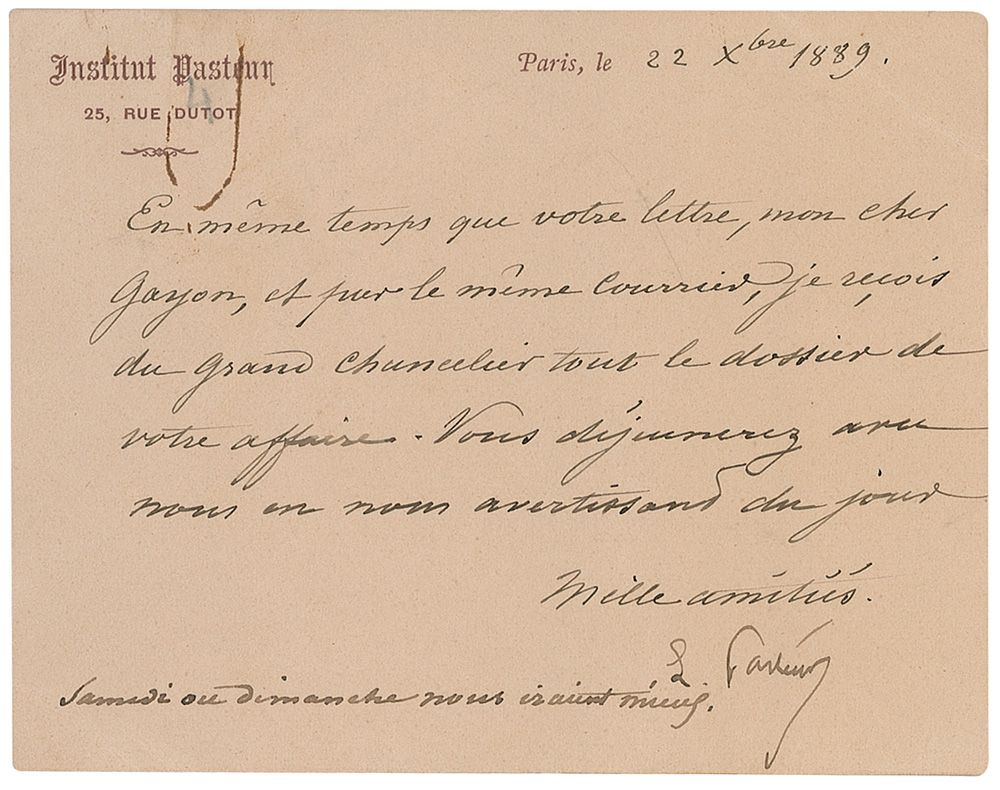 Institut Pasteur
25, RUE DUTOT
Paris, le 22 Xbre 1889.
En même temps que votre lettre, mon cher
Gayon, et par le même courrier, je reçois
du grand chancelier tout le dossier de
votre affaire. Vous déjeunerez avec
nous en nous avertissant du jour
Mille amitiés.
L Pasteur
Samedi ou dimanche nous iraient mieux.